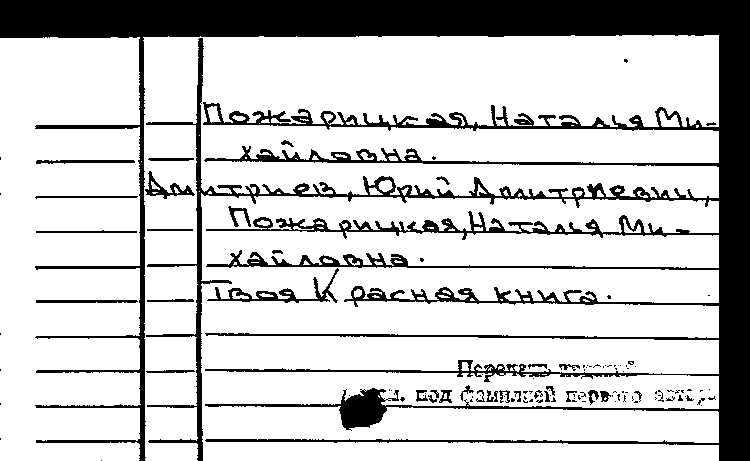 Пожарицкая, Наталья Ми-
хайловна.
Дмитриев, Юрий Дмитриевич,
Пожарицкая, Наталья Ми-
хайловна.
Твоя Красная книга.
Перечень изданий
см. под фамилией первого автора